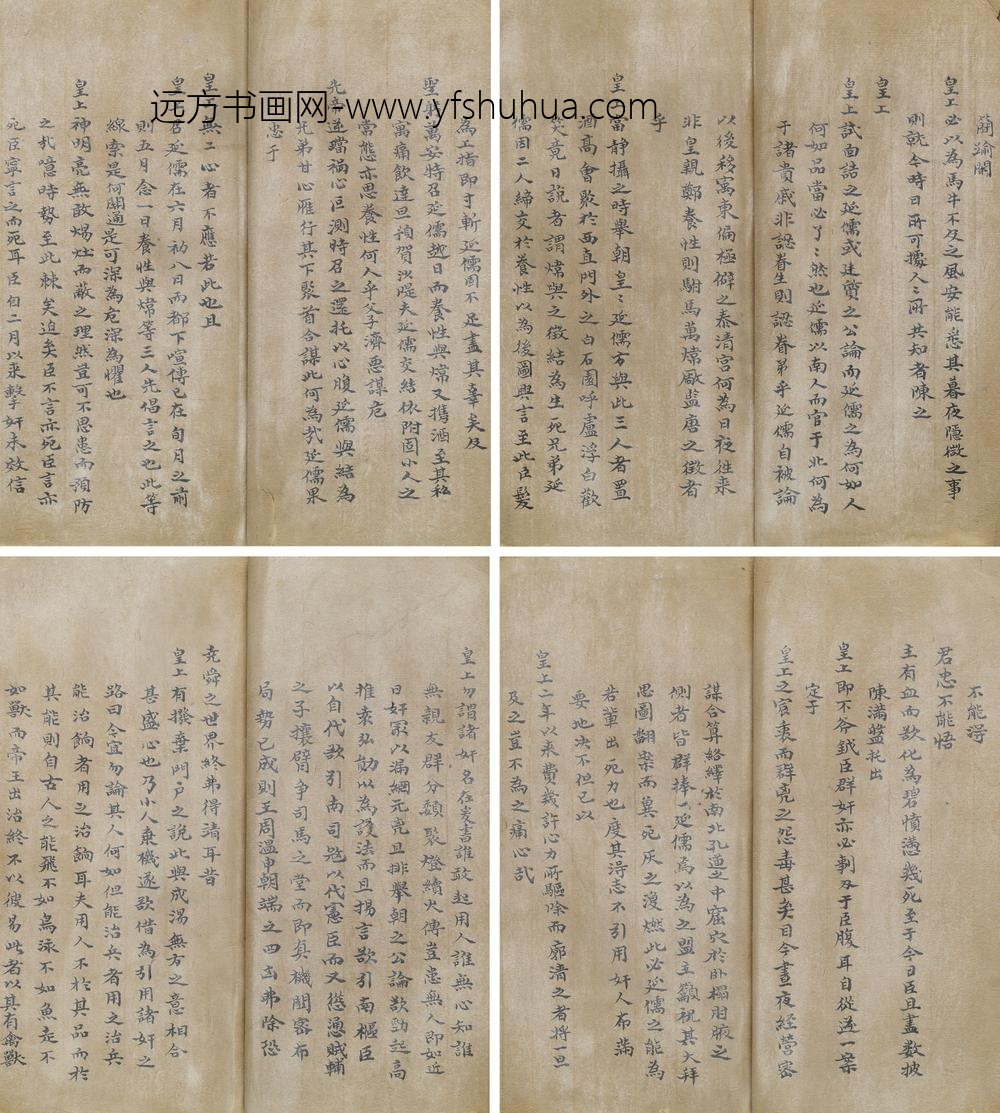 简踰闲
皇上必以為馬牛不及之風安能悉其暮夜隱微之事
則就今時日所可據人々所共知者陳之
皇上
皇上試面詰之延儒或建質之公論而延儒之為何如人
何如品當必了々然也延儒以南人而官于北何為
于諸貴戚非認眷生則認眷弟乎延儒自被論
以後移寓東偏極僻之泰清宮何為日夜往来
非皇親鄭養性則駙馬萬煒廠監唐之徵者
乎
皇上當靜攝之時舉朝皇々延儒方與此三人者置
酒髙會聚於西直門外之白石園呼盧浮白歡
笑竟日說者謂煒與之徵結為生死兄弟延
儒因二人締交於養性以為後圖興言至此臣髮
為上指即寸斬延儒固不足盡其辜矣及
聖躬萬安特召延儒越日而養性與煒又携酒至其私
寓痛飲達旦預賀
當態亦思養性何人乎父子濟惡謀危
先帝
先弟甘心雁行其下聚首合謀此何為哉延儒果
忠于
皇上無二心者不應若此也且
皇上召延儒在六月初八日而都下喧傳已在旬月之前
則五月念一日養性與煒等三人先倡言之也此等
線索是何關通是可深為危深為懼也
皇上神明亮無敢煬灶而蔽之理然豈可不思患而預防
之哉噫時勢至此棘矣迫矣臣不言亦死臣言亦
死臣寧言之而死耳臣自二月以来擊奸未效信
不能淂
君忠不能悟
主有血而欲化為碧憤懣幾死至于今日臣且盡數披
陳滿盤托出
皇上即不斧鉞臣群奸亦必剚刃于臣腹耳自從逆一案
定于
皇上之宸衷而群兇之怨毒甚矣日今晝夜經營密
謀合算絡繹於南北孔道之中窟穴於卧榻肘腋之
側者皆群捧一延儒焉以為之盟主籲祝其大拜
思圖翻案而冀死灰之復燃此必延儒之能為
若輩出死力也度其淂志不引用奸人布滿
要地決不但已以
皇上二年以來費幾許心力所驅除而廓清之者將一旦
及之豈不為之痛心哉
皇上勿謂諸奸名在爰書誰敢起用人誰無心知誰
無親友群分類聚燈續火傳豈患無人即如近
日奸冢以漏網元兇且排舉朝之公論欲勁起高
推袁弘勛以為護法而且揚言欲引南樞臣
以自代欲引南司寇以代憲臣而又慫慂賊輔
之子攘臂爭司馬之堂而即真機關密布
局勢已成則王周溫申朝端之四凶弗除恐
堯舜之世界終弗得清耳昔
皇上有撥棄門戶之說此與成湯無方之意相合
甚盛心也乃小人乗機遂欲借為引用諸奸之
路曰今宜勿論其人何如但能治兵者用之治兵
能治餉者用之治餉耳夫用人不於其品而於
其能則自古人之能飛不如鳥泳不如魚走不
如獸而帝王出治終不以彼易此者以其有禽獸
远方书画网-www.yfshuhua.com